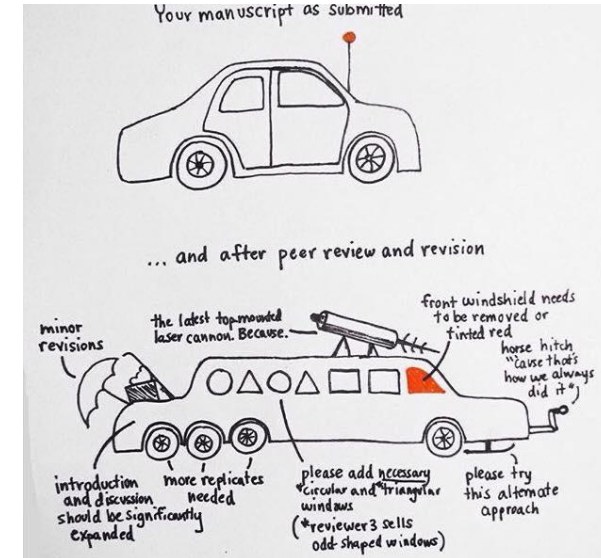 Your manuscript as submitted
... and after peer review and revision
minor
revisions
the latest top-mounted
laser cannon. Because.
front windshield needs
to be removed or
tinted red
horse hitch
"'cause that's
how we always
did it"
introduction
and discussion
should be significantly
expanded
more replicates
needed
please add necessary
*circular and *triangular
windows
(*reviewer 3 sells
odd-shaped windows)
please try
this alternate
approach